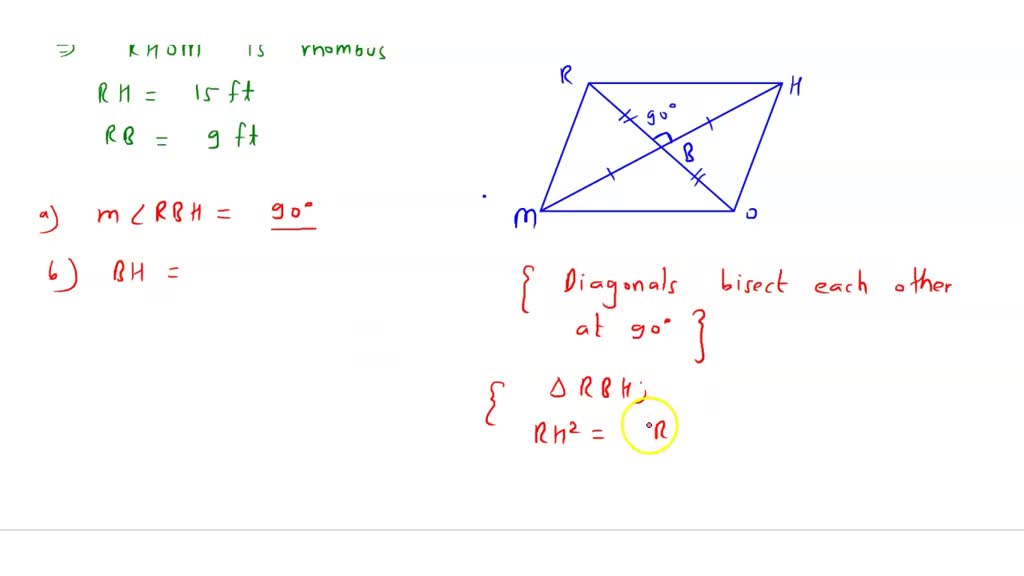 ⇒ RHOM is rhombus
RH = 15 ft
RB = 9 ft
a) m∠RBH = 90°
b) BH =
R
H
90°
B
M
O
{ Diagonals bisect each other
at 90° }
{ Δ RBH;
RH² = R